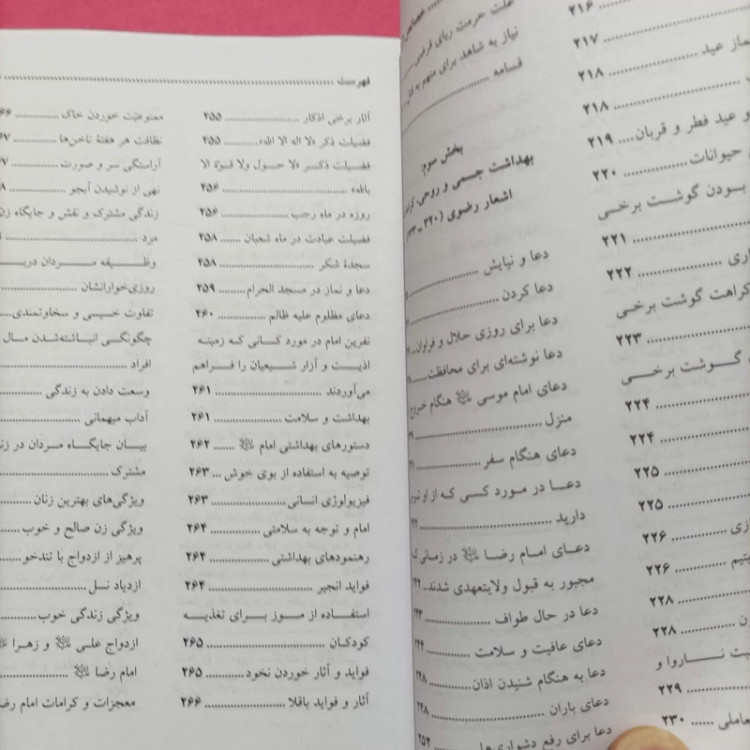 ۲۱۶
۲۱۷
ماز عید
۲۱۸
۲۱۸
و عید فطر و قربان.... ۲۱۹
حیوانات............ ۲۲۰
بودن گوشت برخی
۲۲۱
اری .............. ۲۲۲
کراهت گوشت برخی
۲۲۳
گوشت برخی
۲۲۴
۲۲۴
۲۲۵
۲۲۵
ازی .......... ۲۲۶
یتیم .......... ۲۲۶
۲۲۸
ن .......... ۲۲۸
بت ناروا و
۲۲۹
عاملی ..... ۲۳۰
علت حرمت ربای قرضی
نیاز به شاهد برای متهم به قتل
قسامه
بخش سوم:
بهداشت جسمی و روحی،
اشعار رضوی
دعا و نیایش
دعا کردن
دعا برای روزی حلال و فراوان
دعا نوشته‌ای برای محافظت
دعای امام موسی ﷺ هنگام خروج
منزل
دعای هنگام سفر
دعا در مورد کسی که از او
دارید
دعای امام رضا ﷺ در زمانی که
مجبور به قبول ولایتعهدی شدند..
دعا در حال طواف
دعای عافیت و سلامت
دعا به هنگام شنیدن اذان
دعای باران
دعا برای رفع دشواری‌ها ۲۵۲
فهرست
آثار برخی اذکار ۲۵۵
فضیلت ذکر «لا اله الا الله» ۲۵۵
فضیلت ذکر «لا حول ولا قوة الا
بالله» ۲۵۶
روزه در ماه رجب ۲۵۶
فضیلت عبادت در ماه شعبان ۲۵۸
سجدهٔ شکر ۲۵۸
دعا و نماز در مسجد الحرام ۲۵۹
دعای مظلوم علیه ظالم ۲۶۰
نفرین امام در مورد کسانی که زمینه
اذیت و آزار شیعیان را فراهم
می‌آوردند ۲۶۱
بهداشت و سلامت ۲۶۱
دستورهای بهداشتی امام ﷺ ۲۶۲
توصیه به استفاده از بوی خوش ... ۲۶۳
فیزیولوژی انسانی ۲۶۳
امام و توجه به سلامتی ۲۶۴
رهنمودهای بهداشتی ۲۶۴
فواید انجیر ۲۶۴
استفاده از موز برای تغذیه
کودکان ۲۶۵
فواید و آثار خوردن نخود ۲۶۵
آثار و فواید باقلا ۲۶۶
ممنوعیت خوردن خاک
نظافت هر هفتهٔ ناخن‌ها
آراستگی سر و صورت
نهی از نوشیدن آبجو
زندگی مشترک و نقش و جایگاه زن
مرد
وظیفه مردان
روزی‌خوارانشان
تفاوت خسیسی و سخاوتمندی
چگونگی انباشته‌شدن مال
افراد
وسعت دادن به زندگی
آداب میهمانی
بیان جایگاه مردان در
مشترک
ویژگی‌های بهترین زنان
ویژگی زن صالح و خوب
پرهیز از ازدواج با تندخو
ازدیاد نسل
ویژگی زندگی خوب
ازدواج علی ﷺ و زهرا ﷺ
امام رضا ﷺ
معجزات و کرامات امام رضا